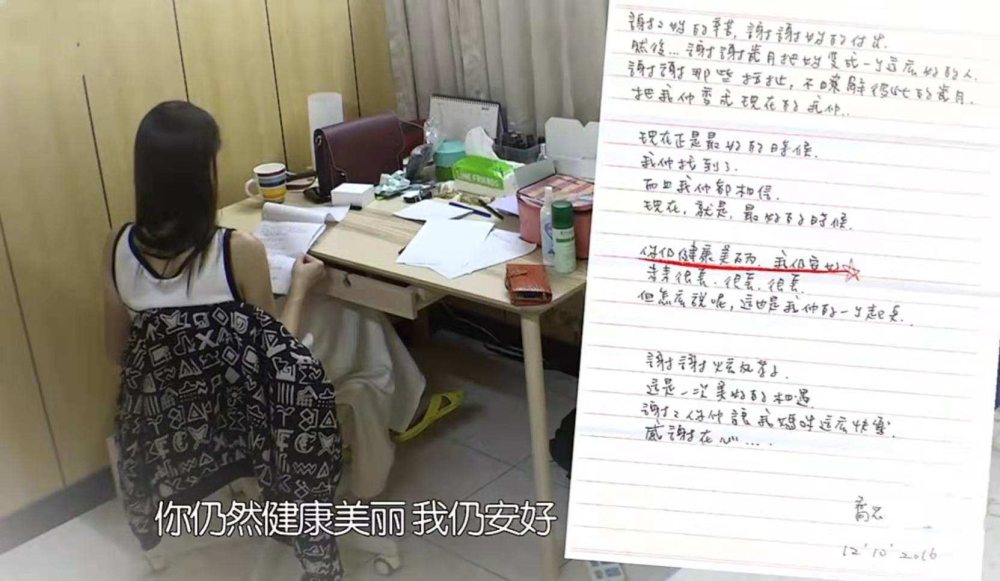 謝2妳的辛苦, 謝謝妳的付出.
然後... 謝謝歲月把妳變成一个這么好的人.
謝謝那些拉扯, 不瞭解彼此的歲月.
把我们變成現在的我们..
現在正是最好的時候.
我们找到了
而且我们都相信.
現在, 就是, 最好的時候.
你仍健康美丽, 我仍安好
未来很長, 很長, 很長.
但怎么説呢, 這也是我们的一个起点.
謝謝
這是一次美好的相遇
謝2你们讓我媽咪這么快樂.
感謝在心....
喬恩
12'10'2016
LINE FRIENDS
你仍然健康美丽 我仍安好